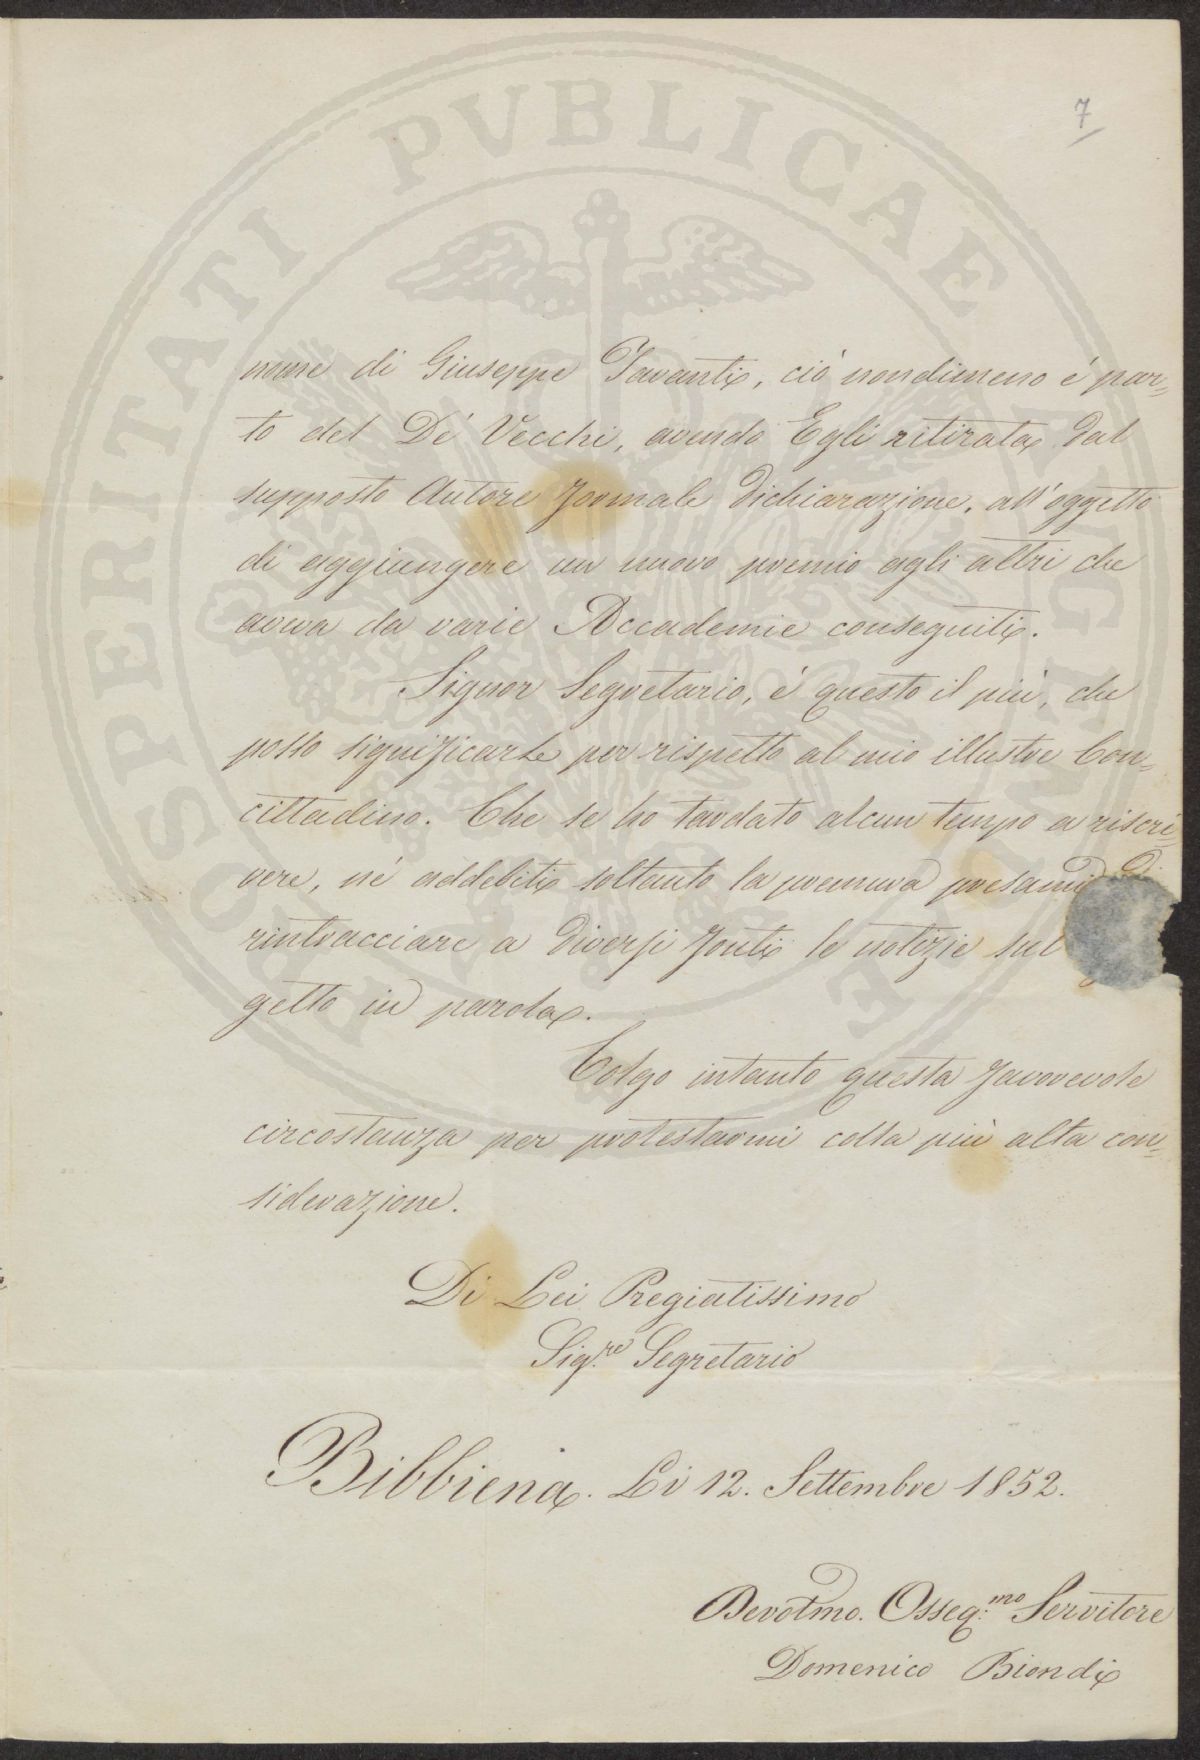 7
nome di Giuseppe Tavanti, ciò nondimeno é par=
to del De' Vecchi, avendo Egli ritirata dal
supposto Autore formale dichiarazione, all'oggetto
di aggiungere un nuovo premio agli altri che
aveva da varie Accademie conseguiti.
Signor Segretario, é questo il più, che
posso significarle per rispetto al mio illustre Con=
cittadino. Che se ho tardato alcun tempo a riscri=
vere, né addebiti soltanto la premura presami di
rintracciare a diversi fonti le notizie sul
getto in parola.
Colgo intanto questa favorevole
circostanza per protestarmi colla più alta con=
siderazione.
Di Lei Pregiatissimo
Sig.re Segretario
Bibbiena. Li 12. Settembre 1852.
Devotmo. Osseq.mo Servitore
Domenico Biondi
PROSPERITATI PVBLICAE AVGENDAE